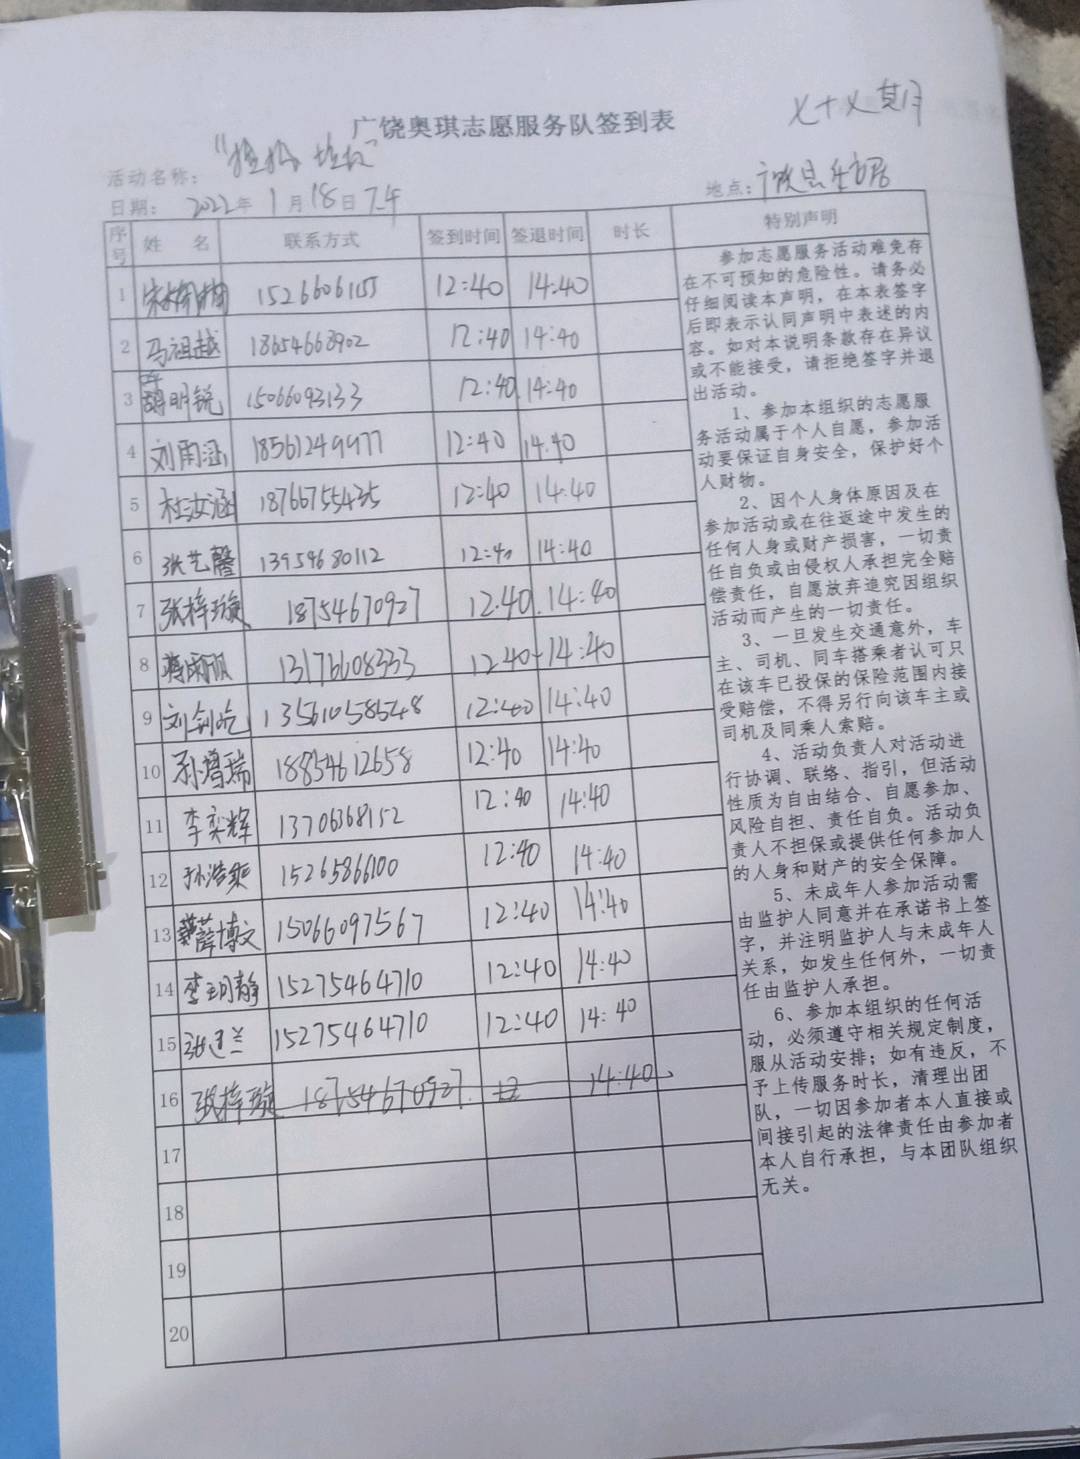 七十七期
广饶奥琪志愿服务队签到表
活动名称：
日期： 2022年 1月18日 下午
地点：广饶县
序号 姓 名 联系方式 签到时间 签退时间 时长 特别声明
1 15266061155 12:40 14:40
2 马祖越 18654668902 12:40 14:40
3 胡明锐 15066093133 12:40 14:40
4 刘雨涵 18561249977 12:40 14:40
5 杜汶涵 18766755435 12:40 14:40
6 张艺馨 13954680112 12:40 14:40
7 张梓璇 18754670927 12:40 14:40
8 13176608333 12:40 14:40
9 刘剑屹 13561058548 12:40 14:40
10 孙增瑞 18854612658 12:40 14:40
11 李奕辉 13706368152 12:40 14:40
12 孙浩 15265866100 12:40 14:40
13 薛博文 15066097567 12:40 14:40
14 李玥静 15275464710 12:40 14:40
15 张建兰 15275464710 12:40 14:40
16 张梓璇 18754670927 12 14:40
17
18
19
20
参加志愿服务活动难免存
在不可预知的危险性。请务必
仔细阅读本声明，在本表签字
后即表示认同声明中表述的内
容。如对本说明条款存在异议
或不能接受，请拒绝签字并退
出活动。
1、参加本组织的志愿服
务活动属于个人自愿，参加活
动要保证自身安全，保护好个
人财物。
2、因个人身体原因及在
参加活动或在往返途中发生的
任何人身或财产损害，一切责
任自负或由侵权人承担完全赔
偿责任，自愿放弃追究因组织
活动而产生的一切责任。
3、一旦发生交通意外，车
主、司机、同车搭乘者认可只
在该车已投保的保险范围内接
受赔偿，不得另行向该车主或
司机及同乘人索赔。
4、活动负责人对活动进
行协调、联络、指引，但活动
性质为自由结合、自愿参加、
风险自担、责任自负。活动负
责人不担保或提供任何参加人
的人身和财产的安全保障。
5、未成年人参加活动需
由监护人同意并在承诺书上签
字，并注明监护人与未成年人
关系，如发生任何外，一切责
任由监护人承担。
6、参加本组织的任何活
动，必须遵守相关规定制度，
服从活动安排；如有违反，不
予上传服务时长，清理出团
队，一切因参加者本人直接或
间接引起的法律责任由参加者
本人自行承担，与本团队组织
无关。